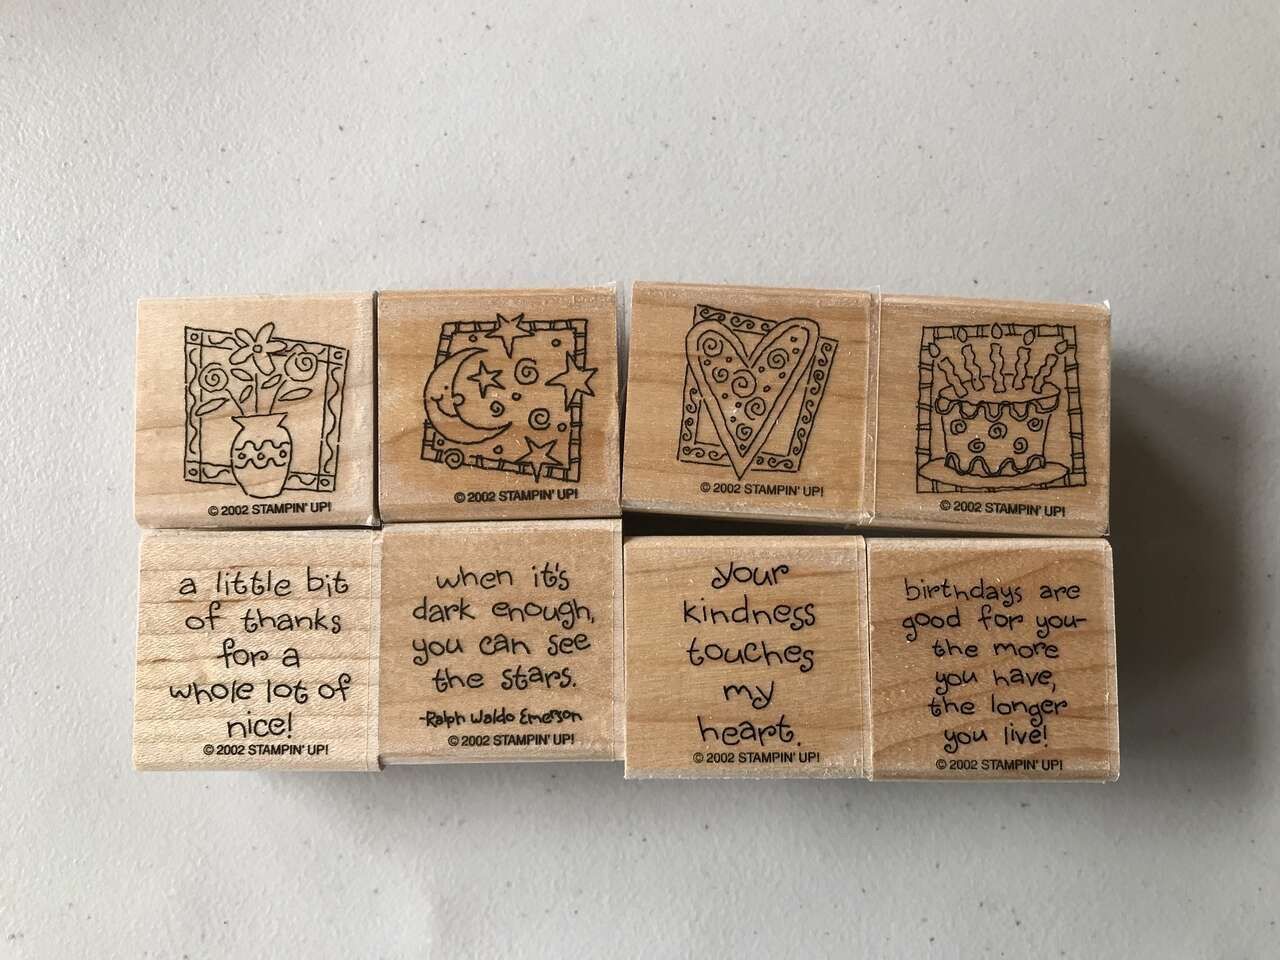 © 2002 STAMPIN' UP!
© 2002 STAMPIN' UP!
© 2002 STAMPIN' UP!
© 2002 STAMPIN' UP!
a little bit
of thanks
for a
whole lot of
nice!
© 2002 STAMPIN' UP!
when it's
dark enough,
you can see
the stars.
-Ralph Waldo Emerson
© 2002 STAMPIN' UP!
your
kindness
touches
my
heart.
© 2002 STAMPIN' UP!
birthdays are
good for you-
the more
you have,
the longer
you live!
© 2002 STAMPIN' UP!